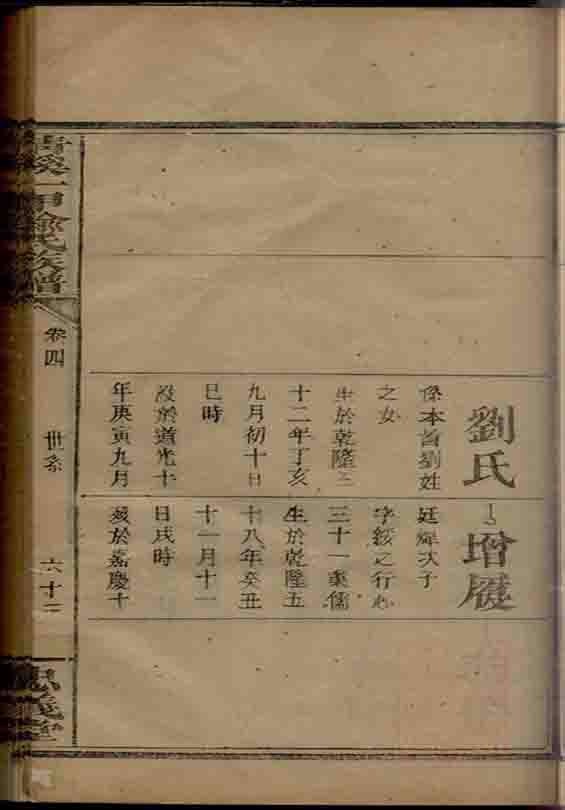 劉氏
係本首劉姓
之女
生於乾隆三
十二年丁亥
九月初十日
巳時
歿於道光十
年庚寅九月
增履
廷煇次子
字綏之行
三十一業儒
生於乾隆五
十八年癸丑
十一月十一
日戌時
歿於嘉慶十
溪一甲氏族譜
卷四
世系
六十二
忠義堂